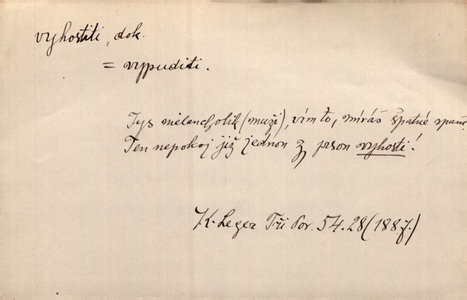 vyhostiti, dok.
= vypuditi.
Tys melancholik (muži), vím to, míváš špatné spaní
Ten nepokoj již jednou z prsou vyhosti!
K. Leger Tři Por. 54.28 (1887.)